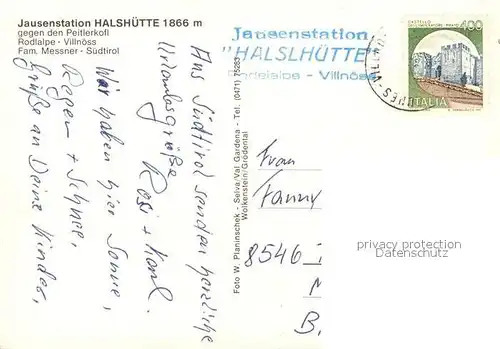 Jausenstation HALSHÜTTE 1866 m
gegen den Peitlerkofl
Rodlalpe - Villnöss
Fam. Messner - Südtirol
Jausenstation
"HALSLHÜTTE"
- Villnöss
400
ITALIA
Aus Südtirol senden herzliche
Urlaubsgrüße
Rosi + Karl.
Wir haben hier Sonne,
Regen + Schnee.
Grüße an Deine Kinder,
Foto W. Planinschek - Selva/Val Gardena - Tel. (0471) 75283
Wolkenstein/Grödental
Frau
Fanny
8546
B.
privacy protection
Datenschutz